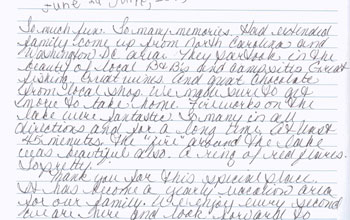 June
So much fun. So many memories. Had extended
family come up from North Carolina and
Washington DC area. They partook in the
beauty of local B&B's and campsites. Great
fishing, great wines and great chocolate
from local shop. We made sure to get
more to take home. Fireworks on the
lake were fantastic. So many in all
directions and for a long time, at least
45 minutes. The "fire" around the lake
was beautiful also. A ring of red flares.
So pretty!
Thank you for this special place.
It has become a yearly vacation area
for our family. We enjoy every second
we are here and look forward to